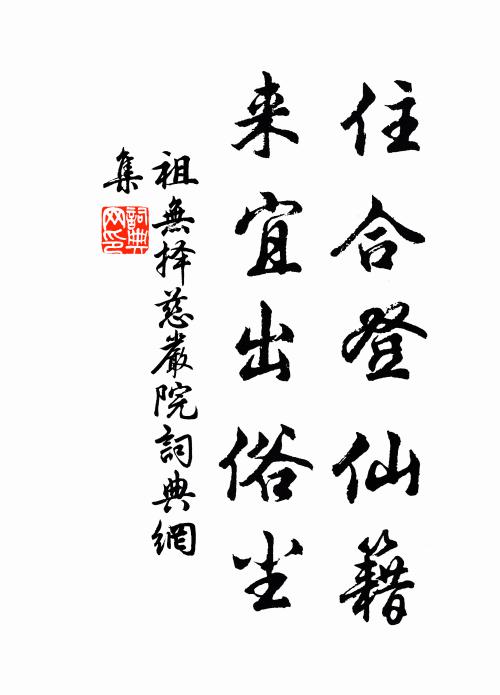 住合登仙籍
来宜出俗尘
祖無择慈巖院詞典網
集
詞典
网印